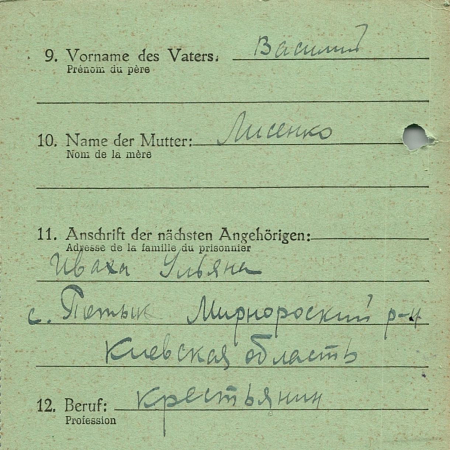 9. Vorname des Vaters. Василий
Prénom du père
10. Name der Mutter: Лисенко
Nom de la mère
11. Anschrift der nächsten Angehörigen:
Adresse de la famille du prisonnier
Иваха Ульяна
с. Петык Мирнороский р-н
Киевская область
12. Beruf: крестьянин
Profession